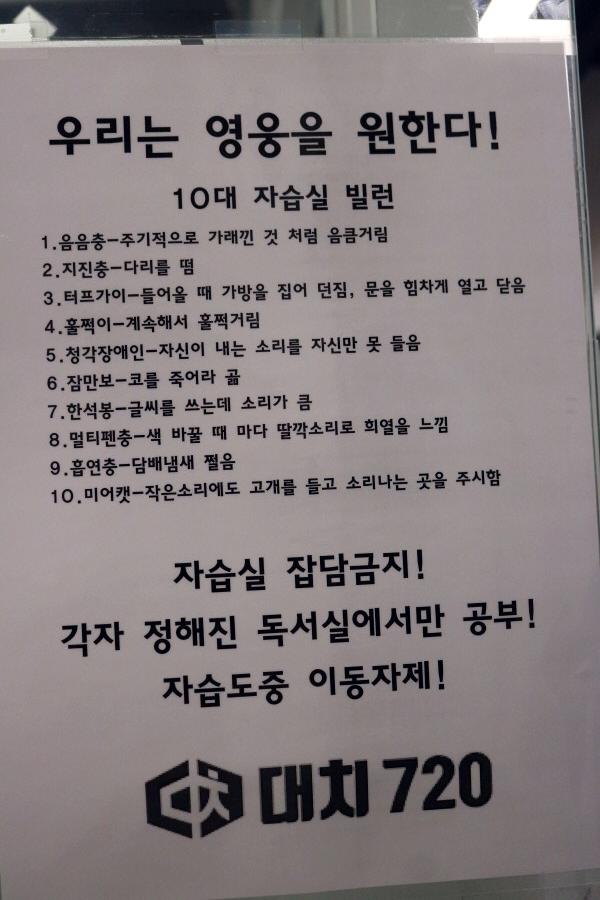 우리는 영웅을 원한다!
10대 자습실 빌런
1.음음충-주기적으로 가래낀 것 처럼 음큼거림
2.지진충-다리를 떰
3.터프가이-들어올 때 가방을 집어 던짐, 문을 힘차게 열고 닫음
4.훌쩍이-계속해서 훌쩍거림
5.청각장애인-자신이 내는 소리를 자신만 못 들음
6.잠만보-코를 죽어라 곪
7.한석봉-글씨를 쓰는데 소리가 큼
8.멀티펜충-색 바꿀 때 마다 딸깍소리로 희열을 느낌
9.흡연충-담배냄새 쩔음
10.미어캣-작은소리에도 고개를 들고 소리나는 곳을 주시함
자습실 잡담금지!
각자 정해진 독서실에서만 공부!
자습도중 이동자제!
대치 720